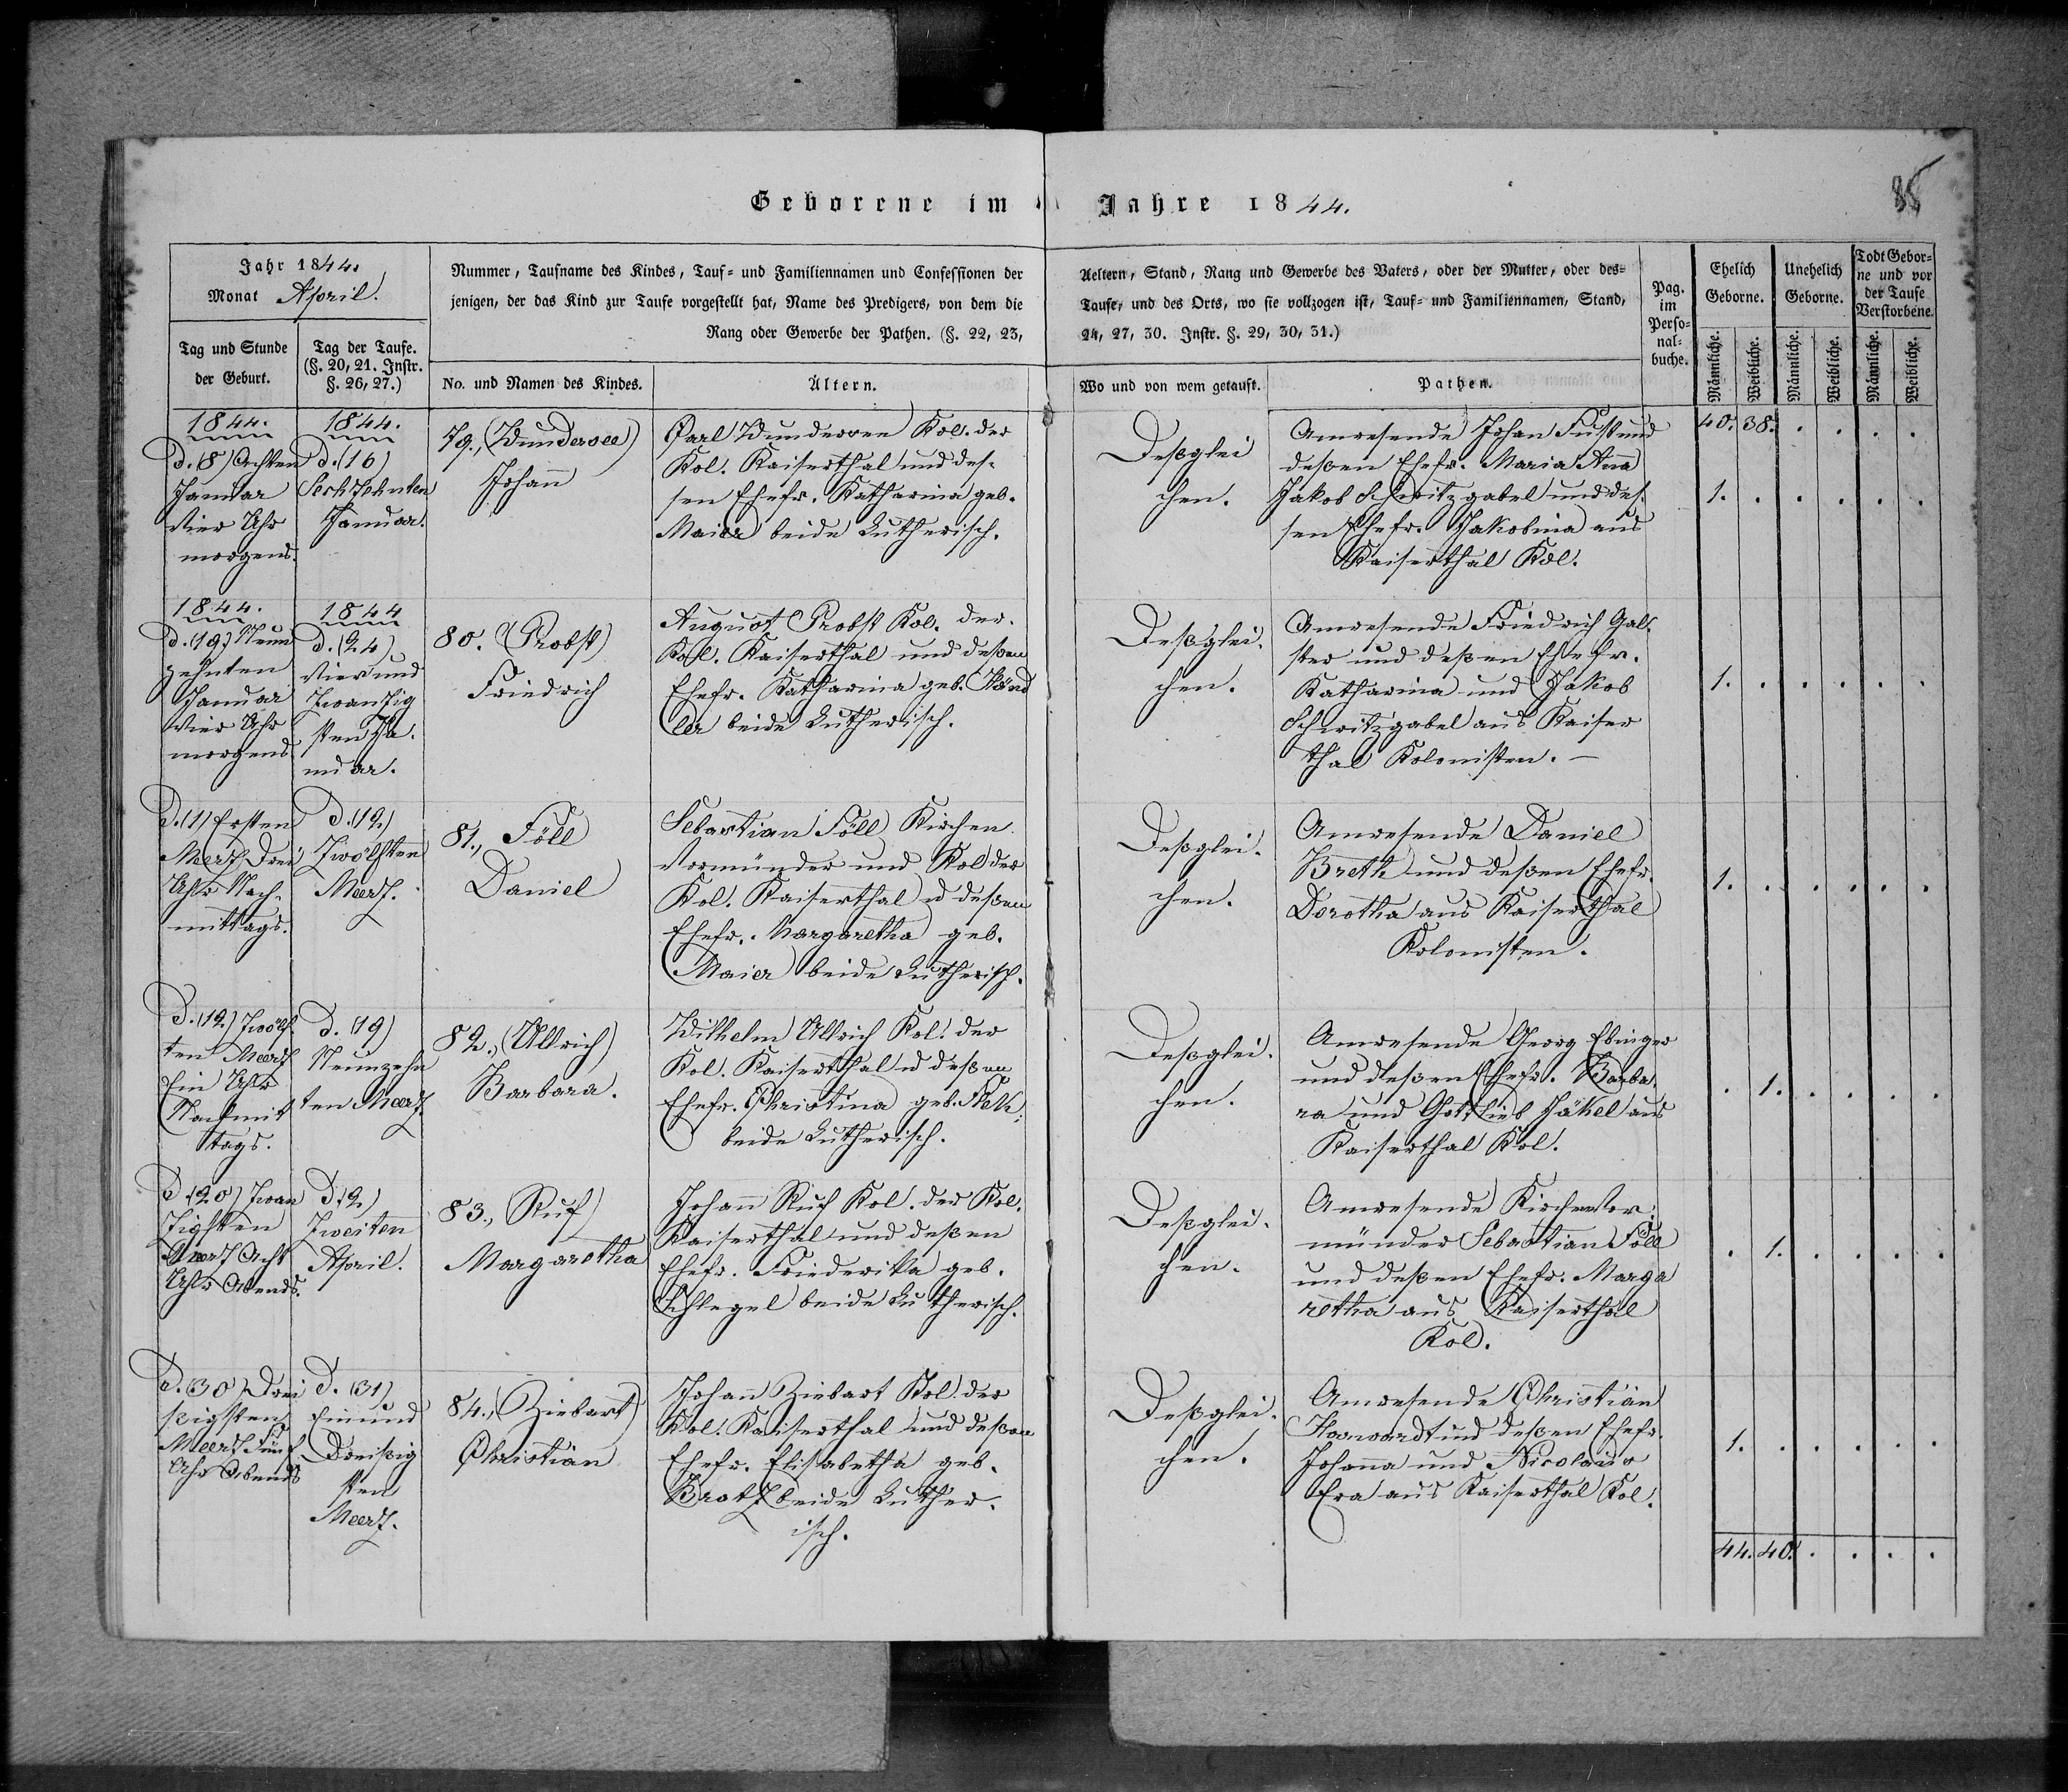 Geborene im Jahre 1844.
85
Jahr 1844.
Monat April.
Tag und Stunde
der Geburt.
Tag der Taufe.
(§. 20, 21. Instr.
§. 26, 27.)
Nummer, Taufname des Kindes, Tauf- und Familiennamen und Confessionen der
jenigen, der das Kind zur Taufe vorgestellt hat, Name des Predigers, von dem die
Rang oder Gewerbe der Pathen. (§. 22, 23,
No. und Namen des Kindes.
Ältern.
Aeltern, Stand, Rang und Gewerbe des Vaters, oder der Mutter, oder des-
Taufe, und des Orts, wo sie vollzogen ist, Tauf- und Familiennamen, Stand,
24, 27, 30. Instr. §. 29, 30, 31.)
Wo und von wem getauft.
Pathen.
Pag.
im
Perso-
nal-
buche.
Ehelich
Geborne.
Unehelich
Geborne.
Todt Gebor-
ne und vor
der Taufe
Verstorbene.
Männliche.
Weibliche.
Männliche.
Weibliche.
Männliche.
Weibliche.
40. 38. . . . .
1844.
d. (8) Achten
Januar
vier Uhr
morgens.
1844.
d. (16)
Sechzehnten
Januar.
79., (Wundersee)
Johann
Carl Wundersee Kol. der
Kol. Kaiserthal und des-
sen Ehefr. Katharina geb.
Maier beide Lutherisch.
Deßglei
chen.
Anwesende Johan Fust und
deßen Ehefr. Maria Ana
Jakob Schwitzgabel und des-
sen Ehefr. Jakobina aus
Kaiserthal Kol.
1. . . . . .
1844.
d. (19) Neun
zehnten
Januar
vier Uhr
morgens
1844
d. (24)
vier und
zwanzig
sten Ja-
nuar.
80. (Probst)
Friedrich
August Probst Kol. der
Kol. Kaiserthal und deßen
Ehefr. Katharina geb.
ler beide Lutherisch.
Deßglei-
chen.
Anwesende Friedrich Gal-
ster und deßen Ehefr.
Katharina und Jakob
Schwitzgabel aus Kaiser
thal Kolonisten. —
1. . . . . .
D. (1) Ersten
Merz Drei
Uhr Nach-
mittags.
D. (12)
Zwölften
Merz.
81., Föll
Daniel
Sebastian Föll Kirchen
vormünder und Kol der
Kol. Kaiserthal u deßen
Ehefr. Margaretha geb.
Maier beide Lutherisch.
Deßglei-
chen.
Anwesende Daniel
Breth und deßen Ehefr.
Dorotha aus Kaiserthal
Kolonisten.
1. . . . . .
D. (12) Zwölf
ten Meerz
Ein Uhr
Nachmit
tags.
D. (19)
Neunzehn
ten Meerz
82., (Ullrich)
Barbara.
Wilhelm Ullrich Kol. der
Kol. Kaiserthal u deßen
Ehefr. Christina geb.
beide Lutherisch.
Deßglei-
chen.
Anwesende Georg Ebinger
und deßen Ehefr. Barba-
ra und Gottlieb Jäkel aus
Kaiserthal Kol.
. 1. . . . .
D (20) Zwan
zigsten
Meerz Acht
Uhr Abends.
D (2)
Zweiten
April.
83., Ruf
Margaretha
Johann Ruf Kol. der Kol.
Kaiserthal und deßen
Ehefr. Friederika geb.
Schlegel beide Lutherisch.
Deßglei-
chen.
Anwesende Kirchenvor-
münder Sebastian Föll
und deßen Ehefr. Marga
retha aus Kaiserthal
Kol.
. 1. . . . .
D. (30) Drei
ßigsten
Meerz Fünf
Uhr Abends
D. (31)
Einund
Dreißig
sten
Meerz.
84., (Ziebart)
Christian
Johann Ziebart Kol. der
Kol. Kaiserthal und deßen
Ehefr. Elisabetha geb.
Bratz beide Luther-
isch.
Deßglei-
chen.
Anwesende Christian
und deßen Ehefr.
Johanna und Nicolaus
aus Kaiserthal Kol.
1. . . . . .
44. 40. . . . .